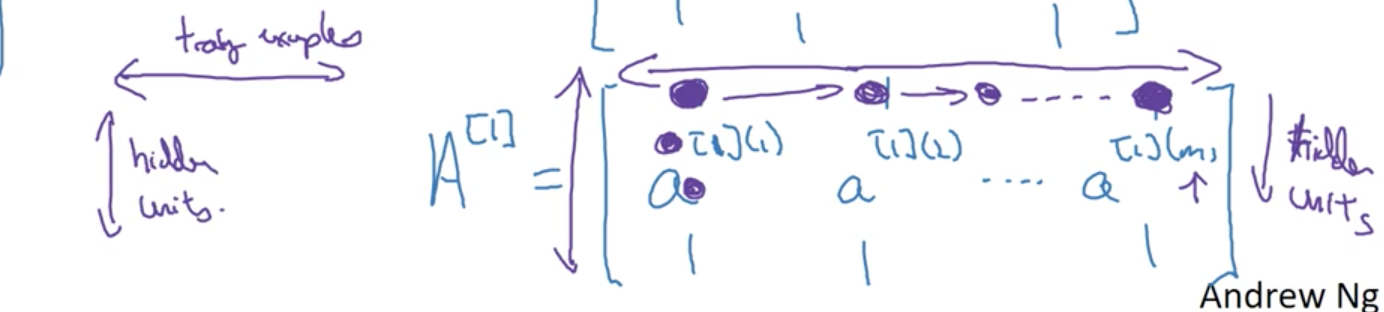 training examples
hidden units.
A[1] =
a[1](1) a[1](2) .... a[1](m)
hidden units
Andrew Ng